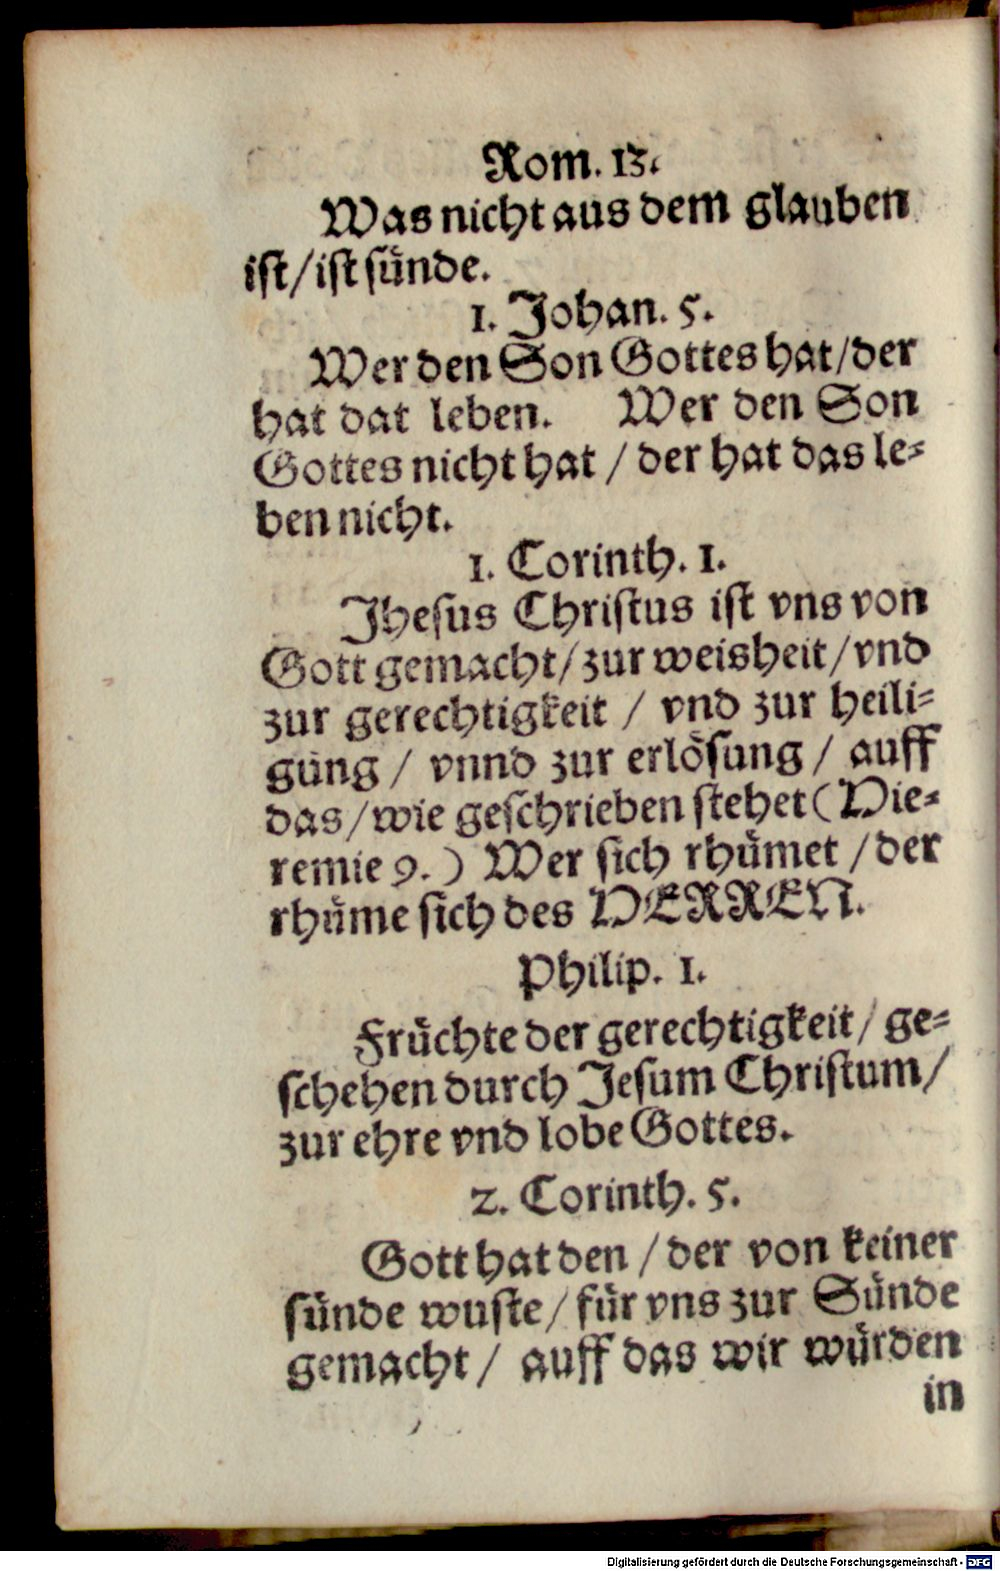 Rom. 13.
Was nicht aus dem glauben
ist/ist sünde.
1. Johan. 5.
Wer den Son Gottes hat/der
hat dat leben. Wer den Son
Gottes nicht hat / der hat das le⸗
ben nicht.
1. Corinth. 1.
Jhesus Christus ist vns von
Gott gemacht/zur weisheit/vnd
zur gerechtigkeit / vnd zur heili⸗
gung / vnnd zur erlösung / auff
das/wie geschrieben stehet (Hie⸗
remie 9.) Wer sich rhümet / der
rhüme sich des HERREN.
Philip. 1.
Früchte der gerechtigkeit / ge⸗
schehen durch Jesum Christum/
zur ehre vnd lobe Gottes.
2. Corinth. 5.
Gott hat den / der von keiner
sünde wuste/ für vns zur Sünde
gemacht / auff das wir würden
in
Digitalisierung gefördert durch die Deutsche Forschungsgemeinschaft - DFG